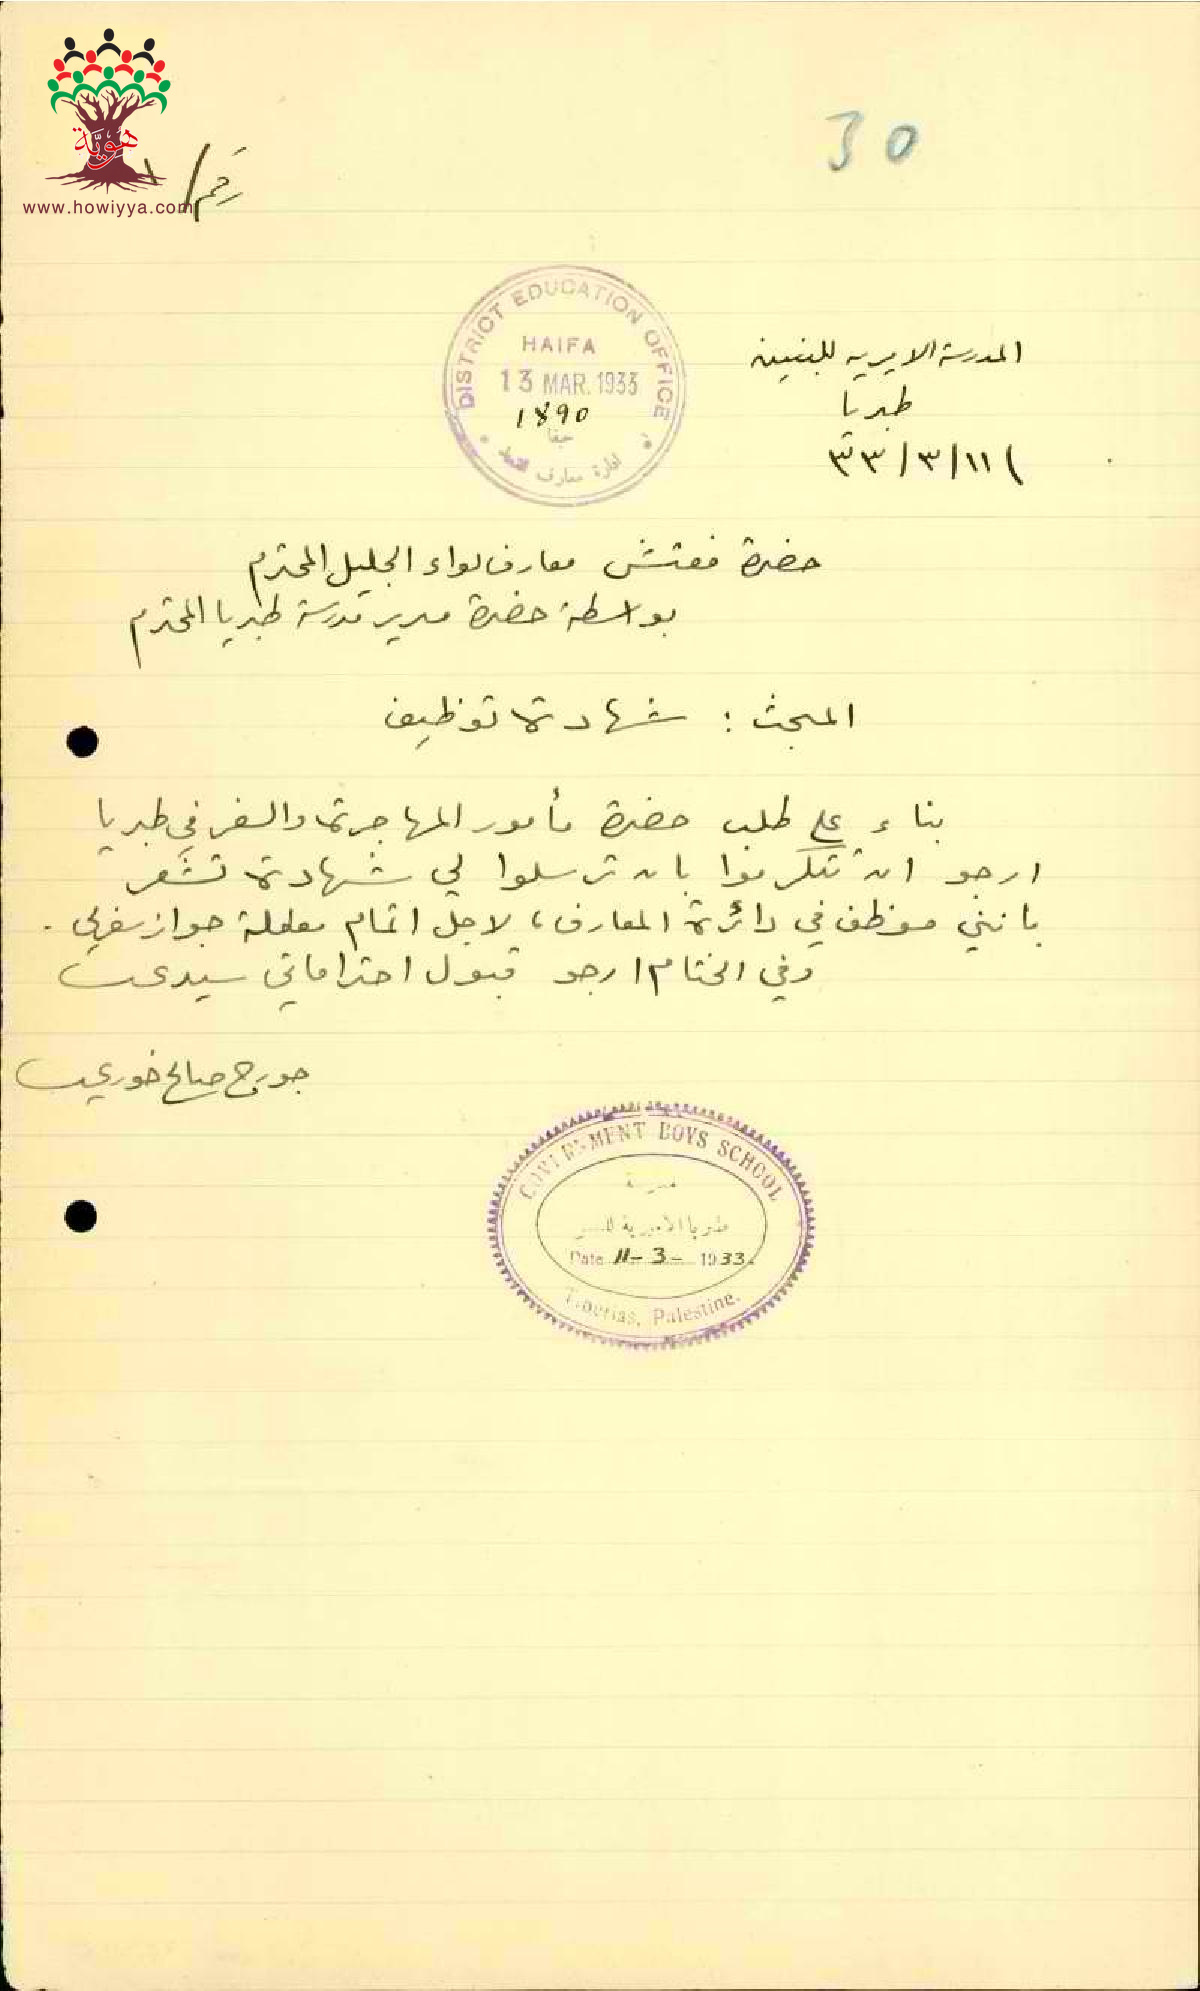 30
هوية
www.howiyya.com
رقم / ١
DISTRICT EDUCATION OFFICE
HAIFA
13 MAR. 1933
1890
حيفا
ادارة معارف
المدرسة الاميرية للبنين
طبريا
١١/٣/٣٣
حضرة مفتش معارف لواء الجليل المحترم
بواسطة حضرة مدير مدرسة طبريا المحترم
المبحث : شهادة توظيف
بناء على طلب حضرة مأمور المهاجرة والسفر في طبريا
ارجو ان تتكرموا بان ترسلوا لي شهادة تشعر
بانني موظف في دائرة المعارف، لاجل اتمام معاملة جواز سفري .
وفي الختام ارجو قبول احتراماتي سيدي
جورج صالح خوري
GOVERNMENT BOYS SCHOOL
مدرسة
طبريا الاميرية
Date 11-3- 1933.
Tiberias, Palestine.